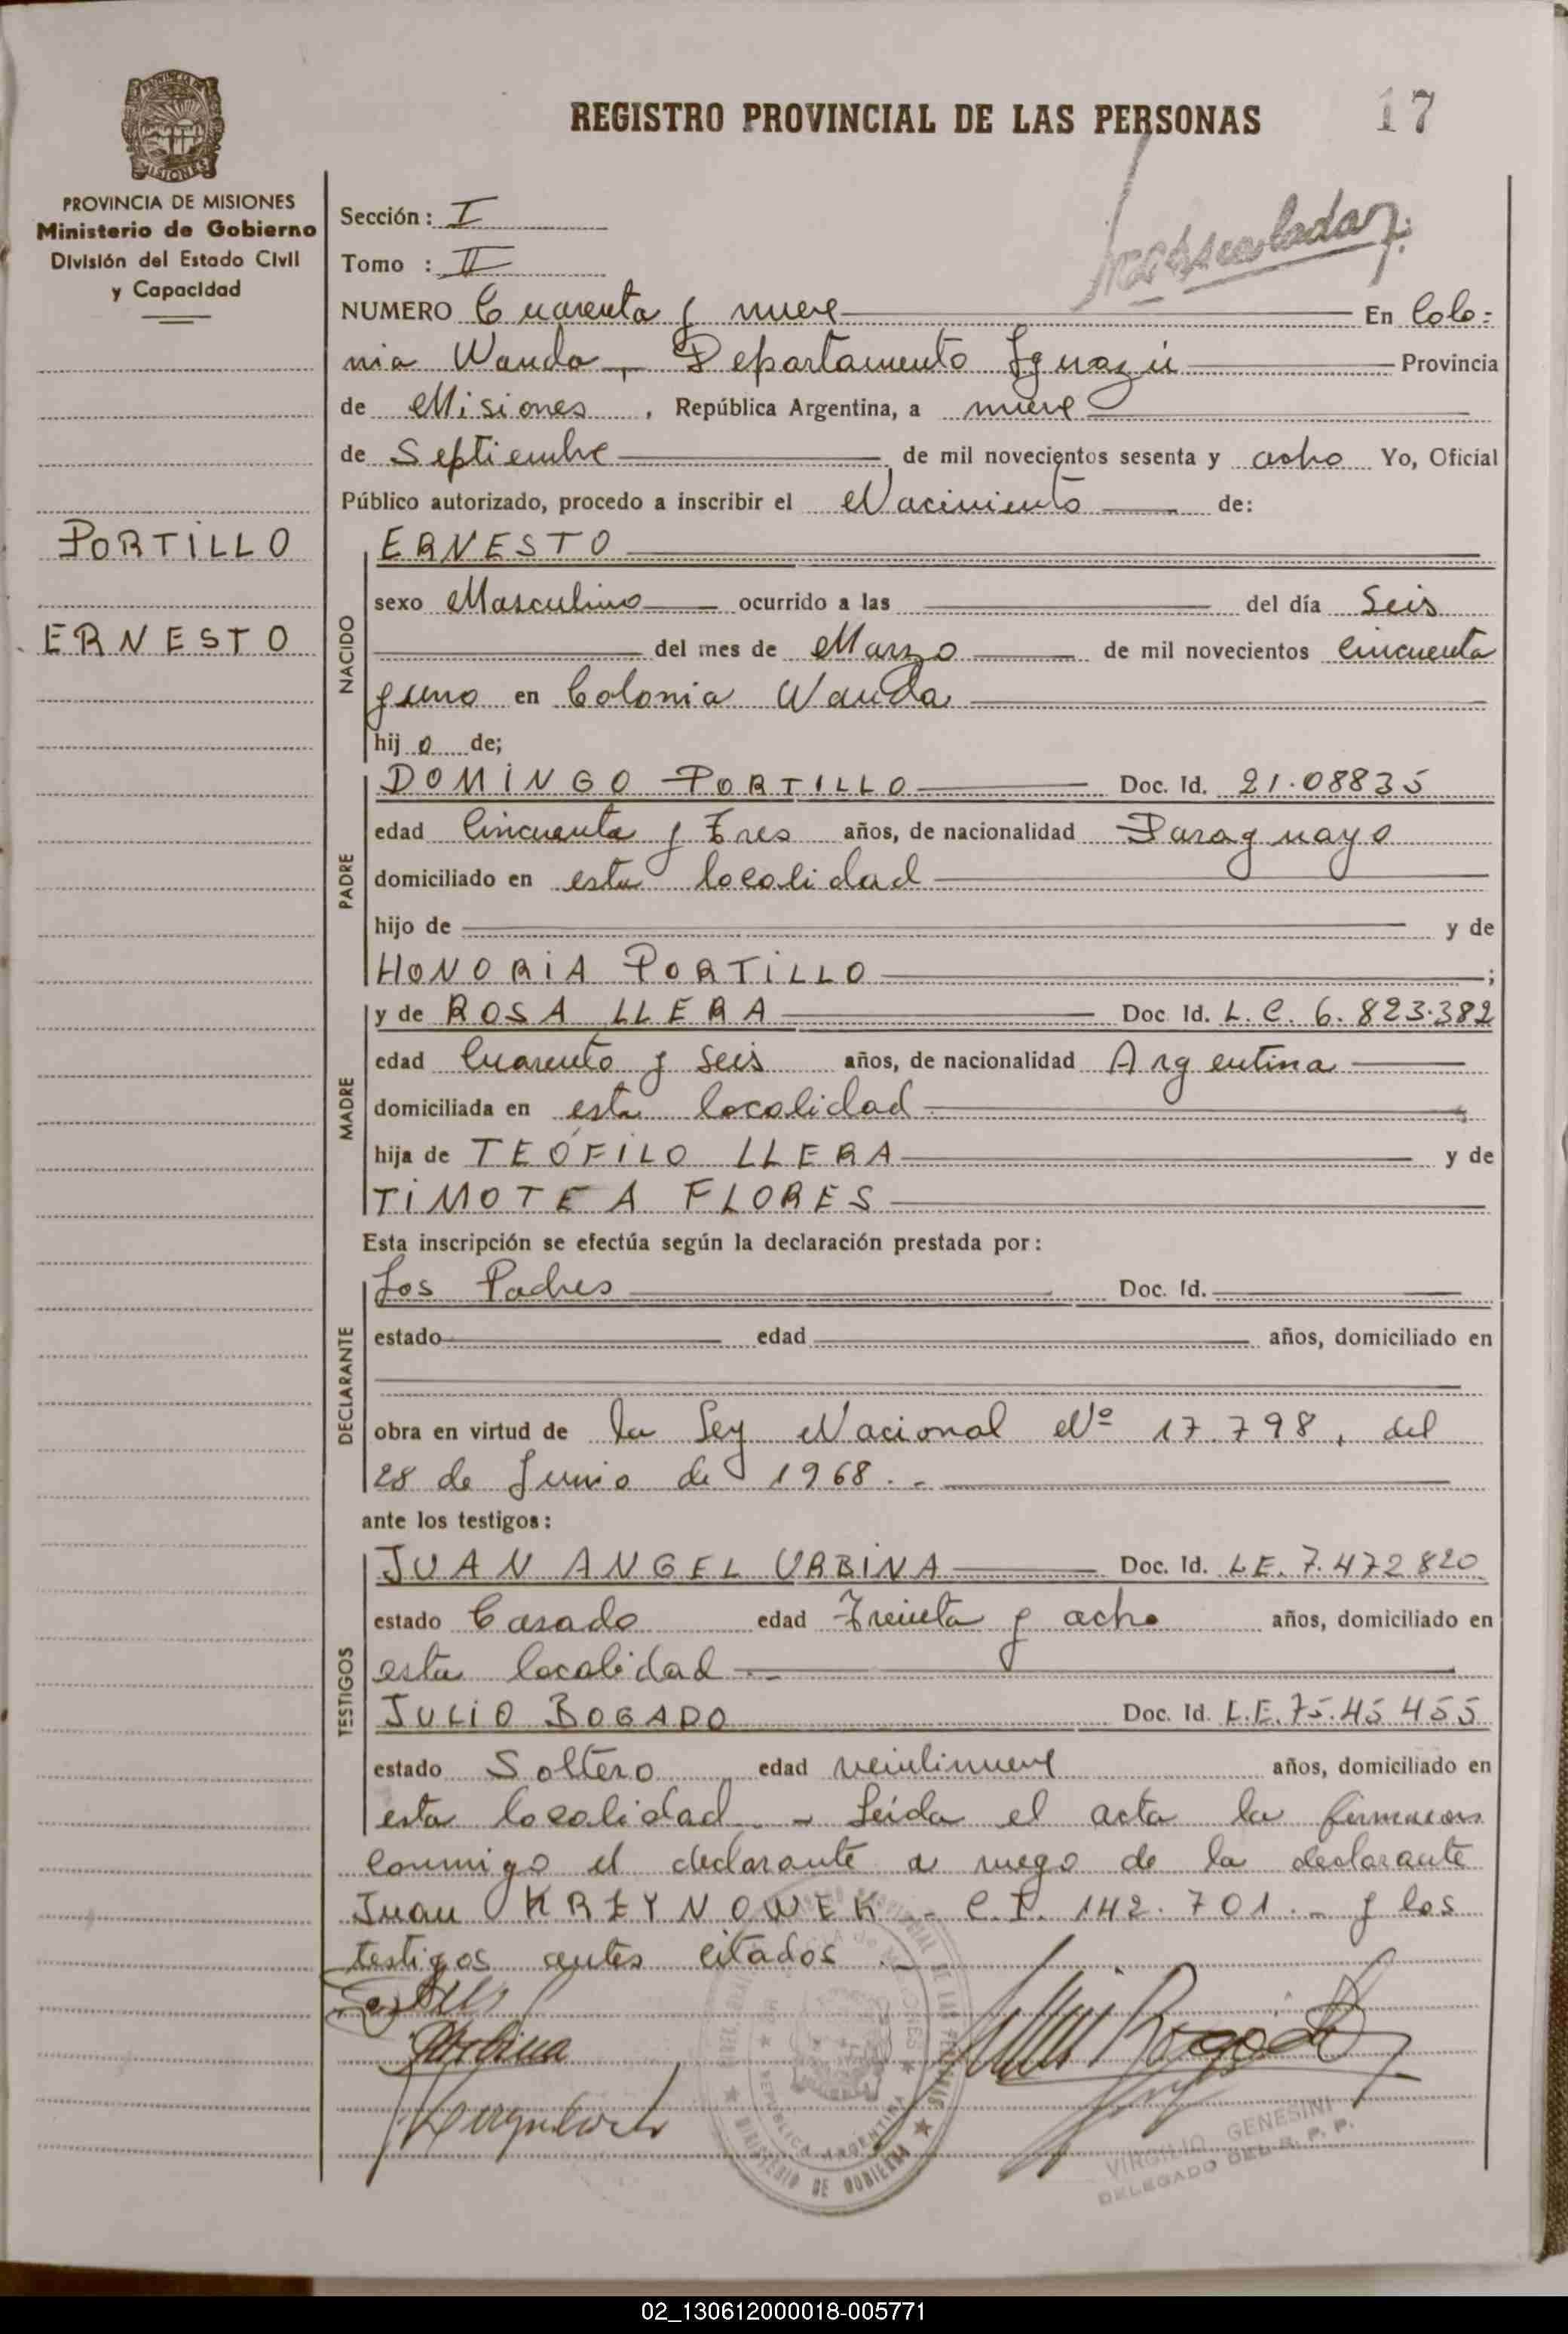 REGISTRO PROVINCIAL DE LAS PERSONAS
17
PROVINCIA DE MISIONES
Ministerio de Gobierno
División del Estado Civil
y Capacidad
PORTILLO
ERNESTO
Sección: I
Tomo : II
NUMERO Cuarenta y nueve En Colo=
nia Wanda, Departamento Iguazú Provincia
de Misiones, República Argentina, a nueve
de Septiembre de mil novecientos sesenta y ocho Yo, Oficial
Público autorizado, procedo a inscribir el Nacimiento de:
NACIDO
ERNESTO
sexo Masculino ocurrido a las del día Seis
del mes de Marzo de mil novecientos Cincuenta
y uno en Colonia Wanda
hij o de;
PADRE
DOMINGO PORTILLO Doc. Id. 21.08835
edad Cincuenta y Tres años, de nacionalidad Paraguayo
domiciliado en esta localidad
hijo de y de
HONORIA PORTILLO ;
MADRE
y de ROSA LLERA Doc Id. L.C. 6.823.382
edad Cuarenta y Seis años, de nacionalidad Argentina
domiciliada en esta localidad
hija de TEÓFILO LLERA y de
TIMOTEA FLORES
Esta inscripción se efectúa según la declaración prestada por:
DECLARANTE
Los Padres Doc. Id.
estado edad años, domiciliado en
obra en virtud de la Ley Nacional Nº 17.798, del
28 de Junio de 1968.-
ante los testigos:
TESTIGOS
JUAN ANGEL URBINA Doc. Id. L.E. 7.472.820
estado Casado edad Treinta y ocho años, domiciliado en
esta localidad
JULIO BOGADO Doc. Id. L.E. 75.45.455
estado Soltero edad veintinueve años, domiciliado en
esta localidad.- Leída el acta la firmaron
conmigo el declarante a ruego de la declarante
Juan KREYNOWEK - C.I. 142.701.- y los
testigos antes citados.-
REPUBLICA ARGENTINA
MINISTERIO DE GOBIERNO
VIRGILIO GENESINI
DELEGADO DEL R. P. P.
02_130612000018-005771